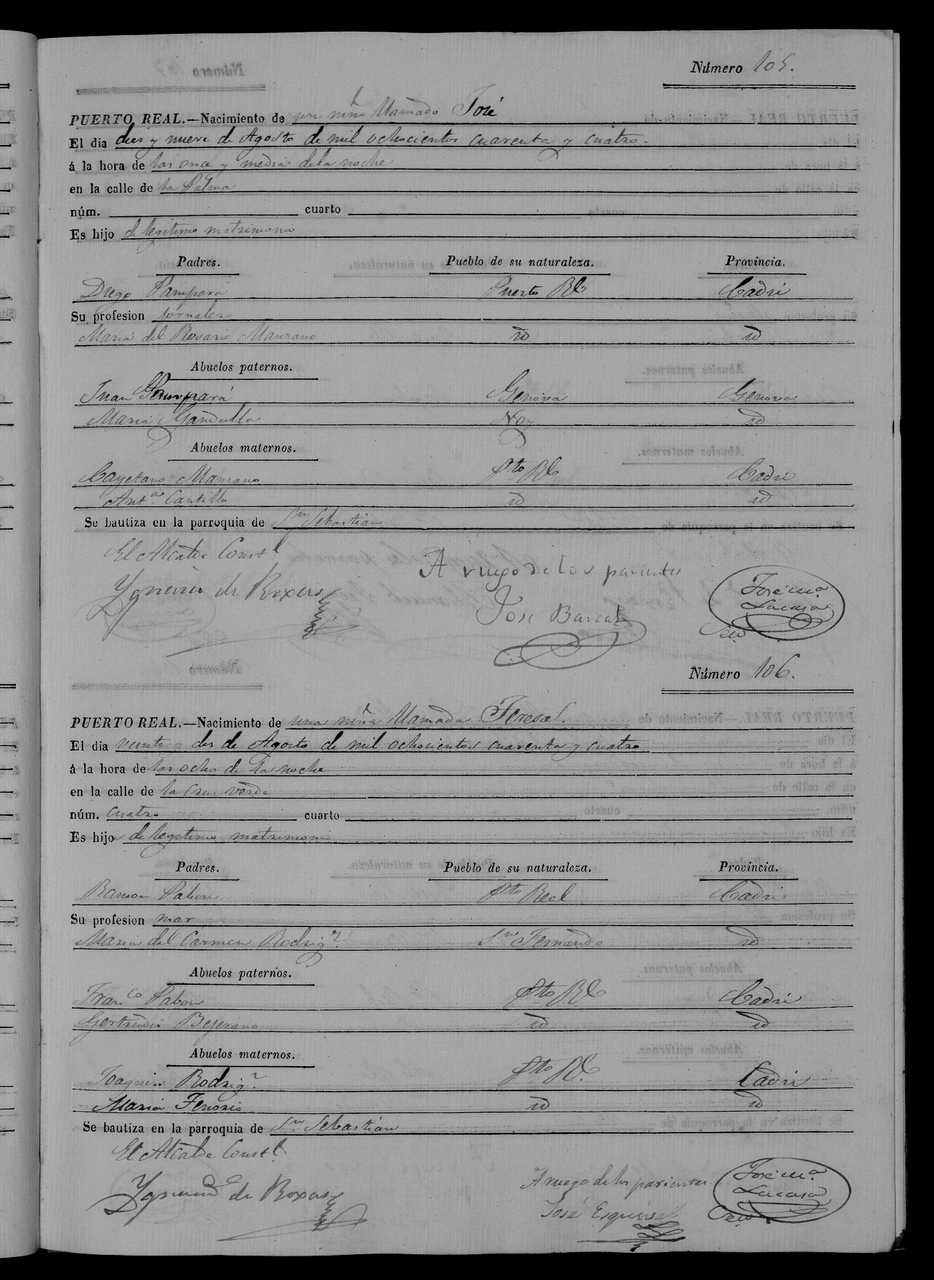 Número 105.
PUERTO REAL.—Nacimiento de un niño llamado José
El dia diez y nueve de Agosto de mil ochocientos cuarenta y cuatro.
á la hora de las once y media de la noche
en la calle de la Palma
núm. cuarto
Es hijo de legitimo matrimonio
Padres. Pueblo de su naturaleza. Provincia.
Diego Sampara Puerto Rl Cadiz
Su profesion jornalero
Maria del Rosario Manzano id id
Abuelos paternos.
Juan Genova Genova
Maria id
Abuelos maternos.
Cayetano Manzano Pto Rl Cadiz
Anta Cantillo id id
Se bautiza en la parroquia de Sn Sebastian
El Alcalde Constl
Ygnacio de Roxas
A ruego de los parientes
José
José Ma
Lacasa
Srio
Número 106.
PUERTO REAL.—Nacimiento de una niña llamada Teresa.
El dia veinte y dos de Agosto de mil ochocientos cuarenta y cuatro
á la hora de las ocho de la noche
en la calle de la Cruz verde
núm. cuatro cuarto
Es hijo de legitimo matrimonio
Padres. Pueblo de su naturaleza. Provincia.
Ramon Pabon Pto Real Cadiz
Su profesion mar
Maria del Carmen Rodrigz Sn Fernando id
Abuelos paternos.
Franco Pabon Pto Rl Cadiz
Gertrudis Bejerano id id
Abuelos maternos.
Joaquin Rodrigz Pto Rl. Cadiz
Maria id id
Se bautiza en la parroquia de Sn Sebastian
El Alcalde Constl.
Ygnacio de Roxas
A ruego de los parientes
José Esquivel
José Ma
Lacasa
Srio